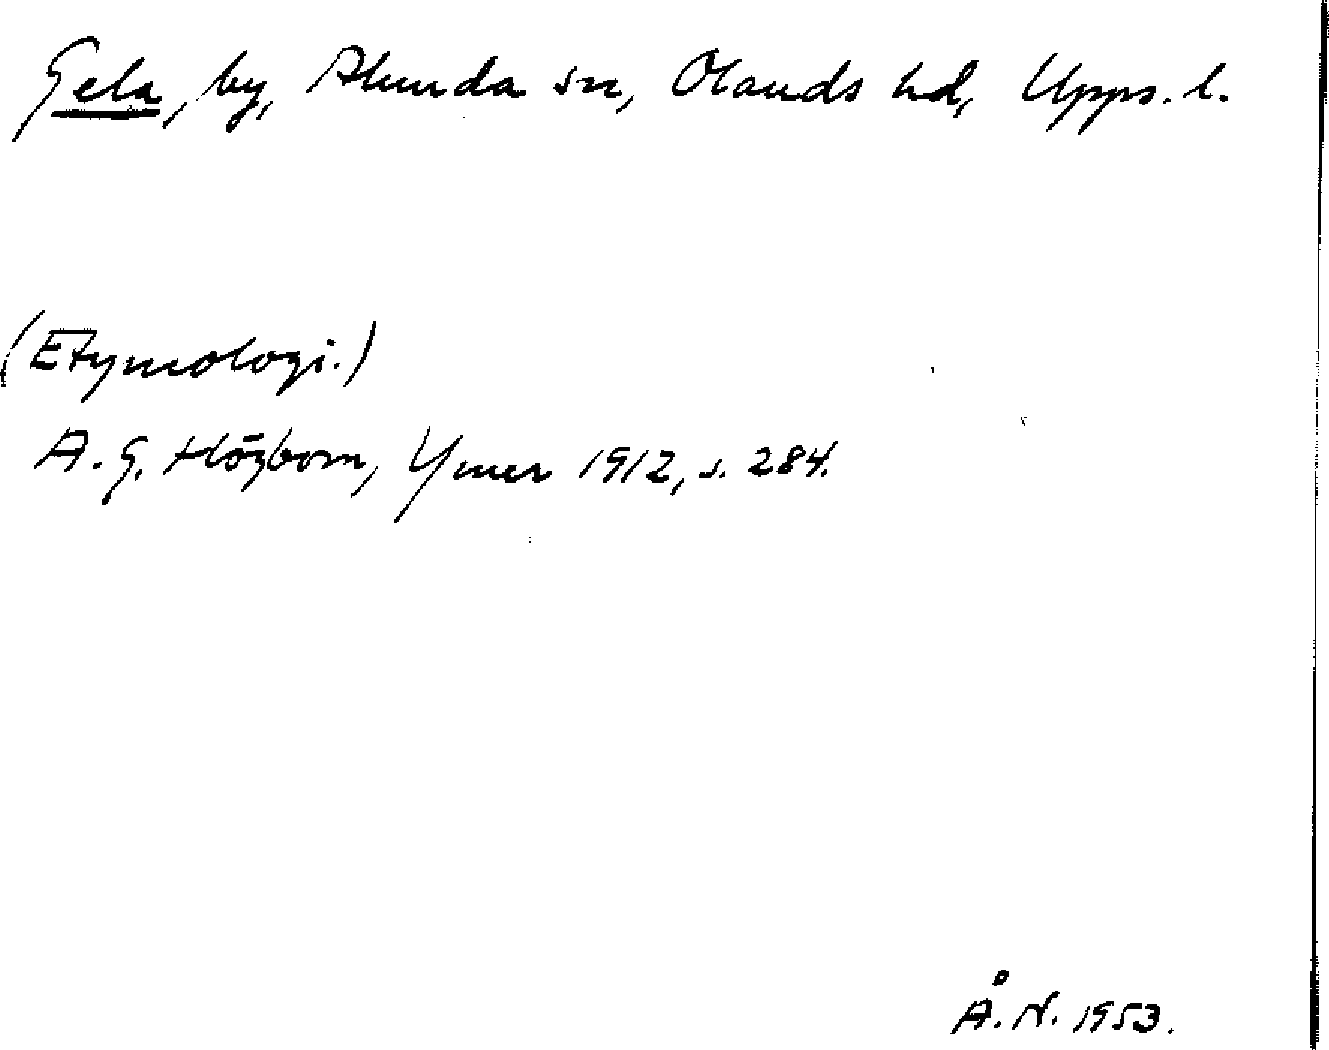 Gela, by, Alunda sn, Olands hd, Upps. l.
(Etymologi.)
A. G. Högbom, Ymer 1912, s. 284.
Å. N. 1953.